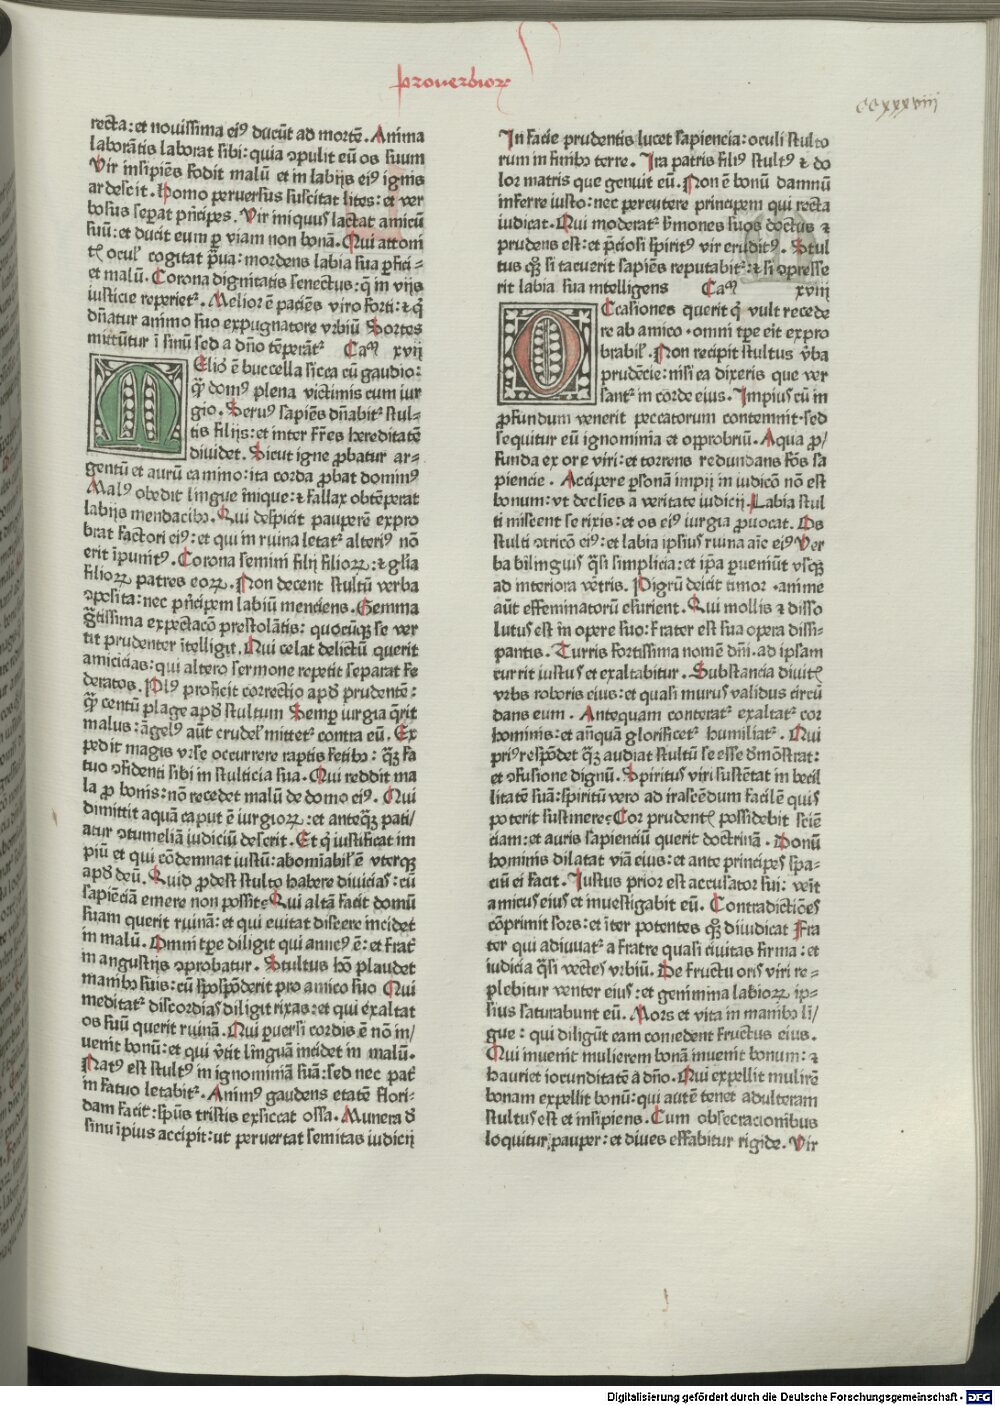 prouerbiorꝝ
ccxxxviii
recta: et nouissima eiꝰ ducūt ad mortē. Anima
laborātis laborat sibi: quia ↄpulit eū os suum
Vir insipiēs fodit malū et in labijs eiꝰ ignis
ardescit. Homo peruersus suscitat lites: et ver
bosus sepat pͥncipes. Vir iniquus lactat amicū
suū: et ducit eum ꝑ viam non bonā. Qui attoni
tꝭ oculꝭ cogitat praua: mordens labia sua ꝑfici⸗
et malū. Corona dignitatis senectus: q̄ in vijs
iusticie reperietᷣ. Melior ē paciēs viro forti: et qͥ
dn̄atur animo suo expugnatore vrbiū Sortes
mittūtur ī sinū sed a dn̄o tēperātᷣ Caᵐ xvij
Melioꝰ ē buccella sicca cū gaudio:
q̄ȝ domꝰ plena victimis cum iur
gio. Seruꝰ sapiēs dn̄abitᷣ stul⸗
tis filijs: et inter fr̄es hereditatē
diuidet. Sicut igne ꝓbatur ar⸗
gentū et aurū camino: ita corda ꝓbat dominꝰ
Malꝰ obedit lingue inique: ⁊ fallax obtēperat
labijs mendacibꝫ. Qui despicit pauperē expro
brat factori eiꝰ: et qui in ruina letatᷣ alteriꝰ nō
erit īpunitꝰ. Corona seminū filij filioꝝ: ⁊ gl̄ia
filioꝝ patres eoꝝ. Non decent stultū verba
ↄposita: nec pͥncipem labiū menciens. Gemma
gͣtissima expectacō prestolātis: quocūqȝ se ver
tit prudenter ītelligit. Qui celat delictū querit
amicicias: qui altero sermone repetit separat fe
deratos. Plꝰ proficit correctio apd̄ prudentē:
q̄ȝ centū plage apd̄ stultum Semꝑ iurgia q̄rit
malus: āgelꝰ aūt crudelꝭ mittetᷣ contra eū. Ex
pedit magis vrse occurrere raptis fetibꝫ: qͣȝ fa
tuo ↄfidenti sibi in stulticia sua. Qui reddit ma
la ꝓ bonis: nō recedet malū de domo eiꝰ. Qui
dimittit aquā caput ē iurgioꝝ: et anteqͣȝ pati/
atur ↄtumeliā iudiciū deserit. Et qͥ iustificat im
piū et qui cōdemnat iustū: abomīabilꝭ ē vterqȝ
apd̄ deū. Quid ꝓdest stulto habere diuicias: cū
sapiēciā emere non possitꝫ Qui altā facit domū
suam querit ruinā: et qui euitat discere incidet
in malū. Omni tꝑe diligit qui amicꝰ ē: et fratᷣ
in angustijs ↄprobatur. Stultus hō plaudet
manibꝫ suis: cū spospōderit pro amico suo Qui
meditatᷣ discordias diligit rixas: et qui exaltat
os suū querit ruinā. Qui ꝑuersi cordis ē nō in/
ueniet bonū: et qui v̄tit linguā incidet in malū.
Natꝰ est stultꝰ in ignominiā suā: sed nec patᷣ
in fatuo letabitᷣ. Animꝰ gaudens etatē flori⸗
dam facit: spūs tristis exsiccat ossa. Munera d̄
sinu īpius accipit: ut peruertat semitas iudicij
In facie prudentis lucet sapiencia: oculi stulto
rum in finibꝫ terre. Ira patris filiꝰ stultꝰ ⁊ do
lor matris que genuit eū. Non ē bonū damnū
inferre iusto: nec percutere principem qui recta
iudicat. Qui moderatᷣ s̄mones suos doctus ⁊
prudens est: et p̄ciosi spiritꝰ vir eruditꝰ. Stul
tus qͣȝ si tacuerit sapiēs reputabitᷣ: ⁊ si ↄpresse
rit labia sua intelligens Caᵐ xviij
OCcasiones querit qͥ vult recede
re ab amico. omni tꝑe erit expro
brabilꝭ. Non recipit stultus v̄ba
prudēcie: nisi ea dixeris que ver
santᷣ in corde eius. Impius cū in
ꝓfundum venerit peccatorum contemnit. sed
sequitur eū ignominia et opprobriū. Aqua ꝓ/
funda ex ore viri: et torrens redundans fōs sa
piencie. Accipere ꝑsonā impij in iudicō nō est
bonum: vt declīes a veritate iudicij. Labia stul
ti miscent se rixis: et os eiꝰ iurgia ꝓuocat. Os
stulti ↄtricō eiꝰ: et labia ipsius ruina aīe eiꝰ Ver
ba bilinguis q̄si simplicia: et ip̄a ꝑueniūt vsqȝ
ad interiora vētris. Pigrū deicit timor. anime
aūt effeminatorū esurient. Qui mollis ⁊ disso
lutus est in opere suo: frater est sua opera dissi⸗
pantis. Turris fortissima nomē dn̄i. ad ipsam
currit iustus et exaltabitur. Substancia diuitꝭ
vrbs roboris eius: et quasi murus validus circū
dans eum. Antequam conteratᷣ exaltatᷣ cor
hominis: et an̄quā glorificetᷣ humiliatᷣ. Qui
priꝰ respōdet qͣȝ audiat stultū se esse dmōstrat:
et ↄfusione dignū. Spiritus viri sustētat inbecil
litatē suā: spiritū vero ad irascēdum facilē quis
poterit sustinereꝫ Cor prudentꝭ possidebit sciē
ciam: et auris sapienciū querit doctrinā. Donū
hominis dilatat viā eius: et ante principes spa⸗
ciū ei facit. Iustus prior est accusator sui: veīt
amicus eius et inuestigabit eū. Contradictiōes
cōprimit sors: et īter potentes qͣȝ diiudicat Fra
ter qui adiuuatᷣ a fratre quasi ciuitas firma: et
iudicia q̄si vectes vrbiū. De fructu oris viri re⸗
plebitur venter eius: et genimina labioꝝ ip⸗
sius saturabunt eū. Mors et vita in manibꝫ li/
gue: qui diligūt eam comedent fructus eius.
Qui inuenit mulierem bonā inuenit bonum: ⁊
hauriet iocunditatē a dn̄o. Qui expellit mulirē
bonam expellit bonū: qui autē tenet adulteram
stultus est et insipiens. Cum obsecracionibus
loquitur pauper: et diues effabitur rigide. Vir
Digitalisierung gefördert durch die Deutsche Forschungsgemeinschaft - DFG